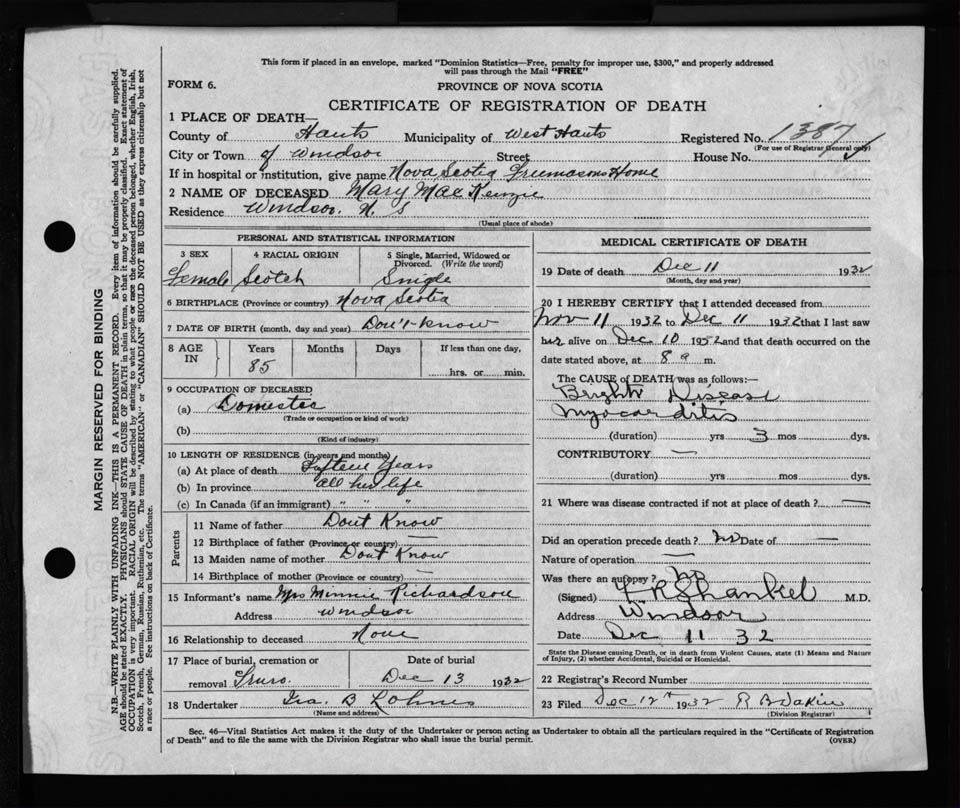 This form if placed in an envelope, marked "Dominion Statistics—Free, penalty for improper use, $300," and properly addressed
will pass through the Mail "FREE"
FORM 6.
PROVINCE OF NOVA SCOTIA
CERTIFICATE OF REGISTRATION OF DEATH
1 PLACE OF DEATH—
County of Hants Municipality of West Hants Registered No. 1387
(For use of Registrar General only)
City or Town of Windsor Street House No.
If in hospital or institution, give name Nova Scotia Freemasons Home
2 NAME OF DECEASED Mary MacKenzie
Residence Windsor. N. S
(Usual place of abode)
PERSONAL AND STATISTICAL INFORMATION
3 SEX 4 RACIAL ORIGIN 5 Single, Married, Widowed or Divorced. (Write the word)
Female Scotch Single
6 BIRTHPLACE (Province or country) Nova Scotia
7 DATE OF BIRTH (month, day and year) Don't-know
8 AGE IN Years Months Days If less than one day,
85 hrs. or min.
9 OCCUPATION OF DECEASED
(a) Domestic
(Trade or occupation or kind of work)
(b)
(Kind of industry)
10 LENGTH OF RESIDENCE (in years and months)
(a) At place of death Fifteen Years
(b) In province all her life
(c) In Canada (if an immigrant) " " "
Parents
11 Name of father Dont Know
12 Birthplace of father (Province or country) —
13 Maiden name of mother Dont Know
14 Birthplace of mother (Province or country) —
15 Informant's name Mrs Minnie Richardson
Address Windsor
16 Relationship to deceased None
17 Place of burial, cremation or Date of burial
removal Truro. Dec 13 1932
18 Undertaker Ira. B Lohnes
(Name and address)
MEDICAL CERTIFICATE OF DEATH
19 Date of death Dec 11 1932
(Month, day and year)
20 I HEREBY CERTIFY that I attended deceased from
Nov 11 1932 to Dec 11 1932 that I last saw
her alive on Dec. 10 1932 and that death occurred on the
date stated above, at 8 a m.
The CAUSE of DEATH was as follows:—
Brights Disease
Myocarditis
(duration) yrs 3 mos dys.
CONTRIBUTORY —
(duration) yrs. mos. dys.
21 Where was disease contracted if not at place of death? —
Did an operation precede death? no Date of —
Nature of operation —
Was there an autopsy? no
(Signed) Shankel M.D.
Address Windsor
Date Dec 11 32
State the Disease causing Death, or in death from Violent Causes, state (1) Means and Nature
of Injury, (2) whether Accidental, Suicidal or Homicidal.
22 Registrar's Record Number
23 Filed Dec 12th 1932 R B Dakin
(Division Registrar)
Sec. 46—Vital Statistics Act makes it the duty of the Undertaker or person acting as Undertaker to obtain all the particulars required in the "Certificate of Registration
of Death" and to file the same with the Division Registrar who shall issue the burial permit. (OVER)
MARGIN RESERVED FOR BINDING
N.B.—WRITE PLAINLY WITH UNFADING INK—THIS IS A PERMANENT RECORD. Every item of information should be carefully supplied.
AGE should be stated EXACTLY. PHYSICIANS should STATE CAUSE OF DEATH in plain terms, so that it may be properly classified. Exact statement of
OCCUPATION is very important. RACIAL ORIGIN will be described by stating to what people or race the deceased person belonged, whether English, Irish,
Scotch, French, German, Russian, Ruthenian, etc. The terms "AMERICAN" or "CANADIAN" SHOULD NOT BE USED as they express citizenship but not
a race or people. See instructions on back of Certificate.